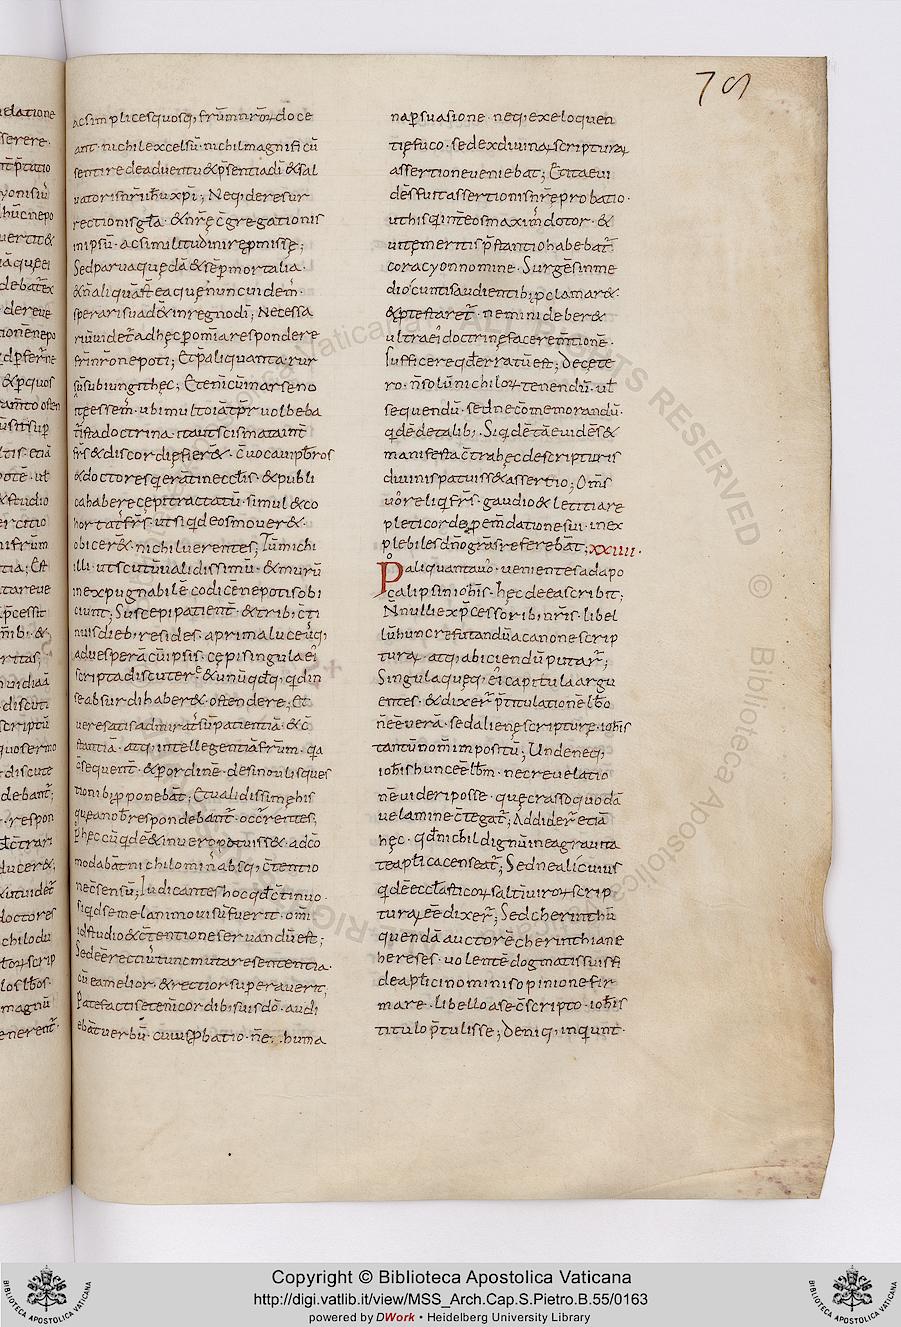 79
ac simplices quosq; frum nroꝝ doce
ant · nichil excelsū · nichil magnifi cū
sentire de aduentu & p̄sentia dī & sal
uatoris nr̄i ih̄u xp̄i; Neq; de resur
rectionis gl̄a · & nr̄ę c̄gregationis
in ipsū · ac similitudinire p̄misse;
Sed parua quędā & sēp mortalia ·
&n̄ aliquā st̄ ea quę nunc uidem̄ ·
sperari suad& in regno dī; Necessa
riū uidet̄ ad hęc p om̄ia respondere
fr̄i nr̄o nepoti; Et p̄ aliquanta rur
sū subiungit hęc; Etenī cū in arseno
ite essem̄ · ubi multo iā tp̄r uolbeba
t̄ ista doctrina · ita ut scismata int̄
fr̄s & discordię fier& · c̄uocaui pb̄ros
& doctores q̄ erāt in eccl̄is · & publi
ca habere cepi tractatū · simul & co
hortat̄ fr̄s · ut si qd eos mouer& ·
obicer& nichil uerentes; Tū michi
illi · ut scutū ualidissimū · & murū
inexpugnabilē codicē nepotis obi
ciunt; Suscepi patient̄ · & trib; c̄ti
nuis dieb; resides · a prima luce usq;
ad uesperā cū ipsis · cępi singula ei
scripta discutere & unū qd̄q; qd̄ in
se absurdi haber& · ostendere; Et
uere satis admirat̄ sū patientiā · & c̄
stantiā · atq; intellegentiā frūm · qa
c̄sequent̄ · & p ordinē · de singulis ques
tionib; p ponebāt; Et ualidissime his
que a nob̄ respondebant̄ · occ̄rrentes;
P̄ hęc cū qd̄ē & inuero potuiss& · adc̄o
modabāt nichilomin̄ absq; c̄tentio
nec̄ sensū; Iudicantes hoc qd̄ c̄tinuo ·
si qd semel animo uisū fuerit · om̄i
id studio & c̄tentione seruandū est;
Sed eē recti tunc mutare sententia ·
cū ea melior · & rectior superauerit;
Patefactis etem̄ cordib; suis dō · audi
ebāt uerbū · cuius p̄batio · n̄ e · huma
na p suasione · neq; ex eloquen
tię fuco · sed ex diuinaꝝ scripturaꝝ
assertione ueniebat; Et ita eui
dēs fuit assertionis nr̄ę probatio ·
ut his qi int̄ eos maxim̄ doctor · &
uitę meritis p̄stantio habebat̄
coracyon nomine · Surgēs in me
dio cunctis audientib; p clamar& ·
& p testaret̄ · nemini deber&
ultra ei doctrinę facere mt̄ione ·
Sufficere qd̄ erratū est; Decęte
ro · n̄ solū nichiloꝝ tenendū · ul̄
sequendū · sed nec̄ memorandū ·
qd̄ē de talib; Si qd̄ē tā euidēs &
manifesta c̄trahęc de scripturis
diuinis patuiss& assertio; Om̄s
uō reliqi fr̄s · gaudio & letitia re
pleti corde p emdatione sui · inex
plebiles dn̄o grās referebāt; XXIIII ·
P̊ aliquanta uō · uenientes ad apo
calipsin ioh̄is · hęc de ea scribit;
Nnulli ex p̄cessorib; nr̄is · libel
lū hunc refutandū a canone scrip
turaꝝ atq; abiciendū putar̄;
Singula quęq; ei capitula argu
entes · & dixer̄ p̄titulationē lb̄o
n̄ eē uerā · sed alienę scripturę · ioh̄is
tantū nom̄ impositū; Unde neq;
ioh̄is hunc eē lb̄m · nec reuelatio
nē uideri posse · quę crasso quodā
uelamine c̄tegat̄; Addider̄ etiā
hęc · qd̄ nichil dignū in ea grauita
te apl̄ica censeat̄; Sed ne alic̄uius
qd̄ē eccl̄asticoꝝ saltī uiroꝝ scrip
turā eē dixer̄; Sed cherinthū
quendā auctorē cherinthianę
hereses · uolentē dogmatis sui sfi
de apl̄ici nominis opinione fir
mare · libello a se c̄scripto · ioh̄is
titulo p̄tulisse; Deniq; inqiunt ·
Copyright © Biblioteca Apostolica Vaticana
http://digi.vatlib.it/view/MSS_Arch.Cap.S.Pietro.B.55/0163
powered by DWork • Heidelberg University Library